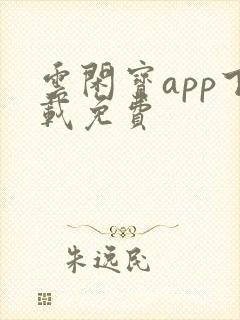 雲閑寶app下
載免費
朱远民